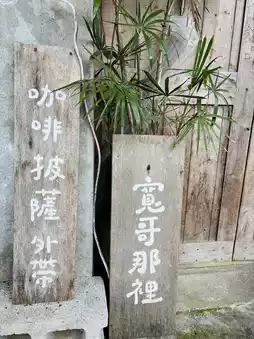 咖啡披薩外帶
寬哥那裡